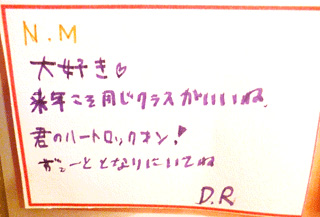 N.M
大好き♡
来年こそ同じクラスがいいね。
君のハートロックオン!
ずーっととなりにいてね
D.R